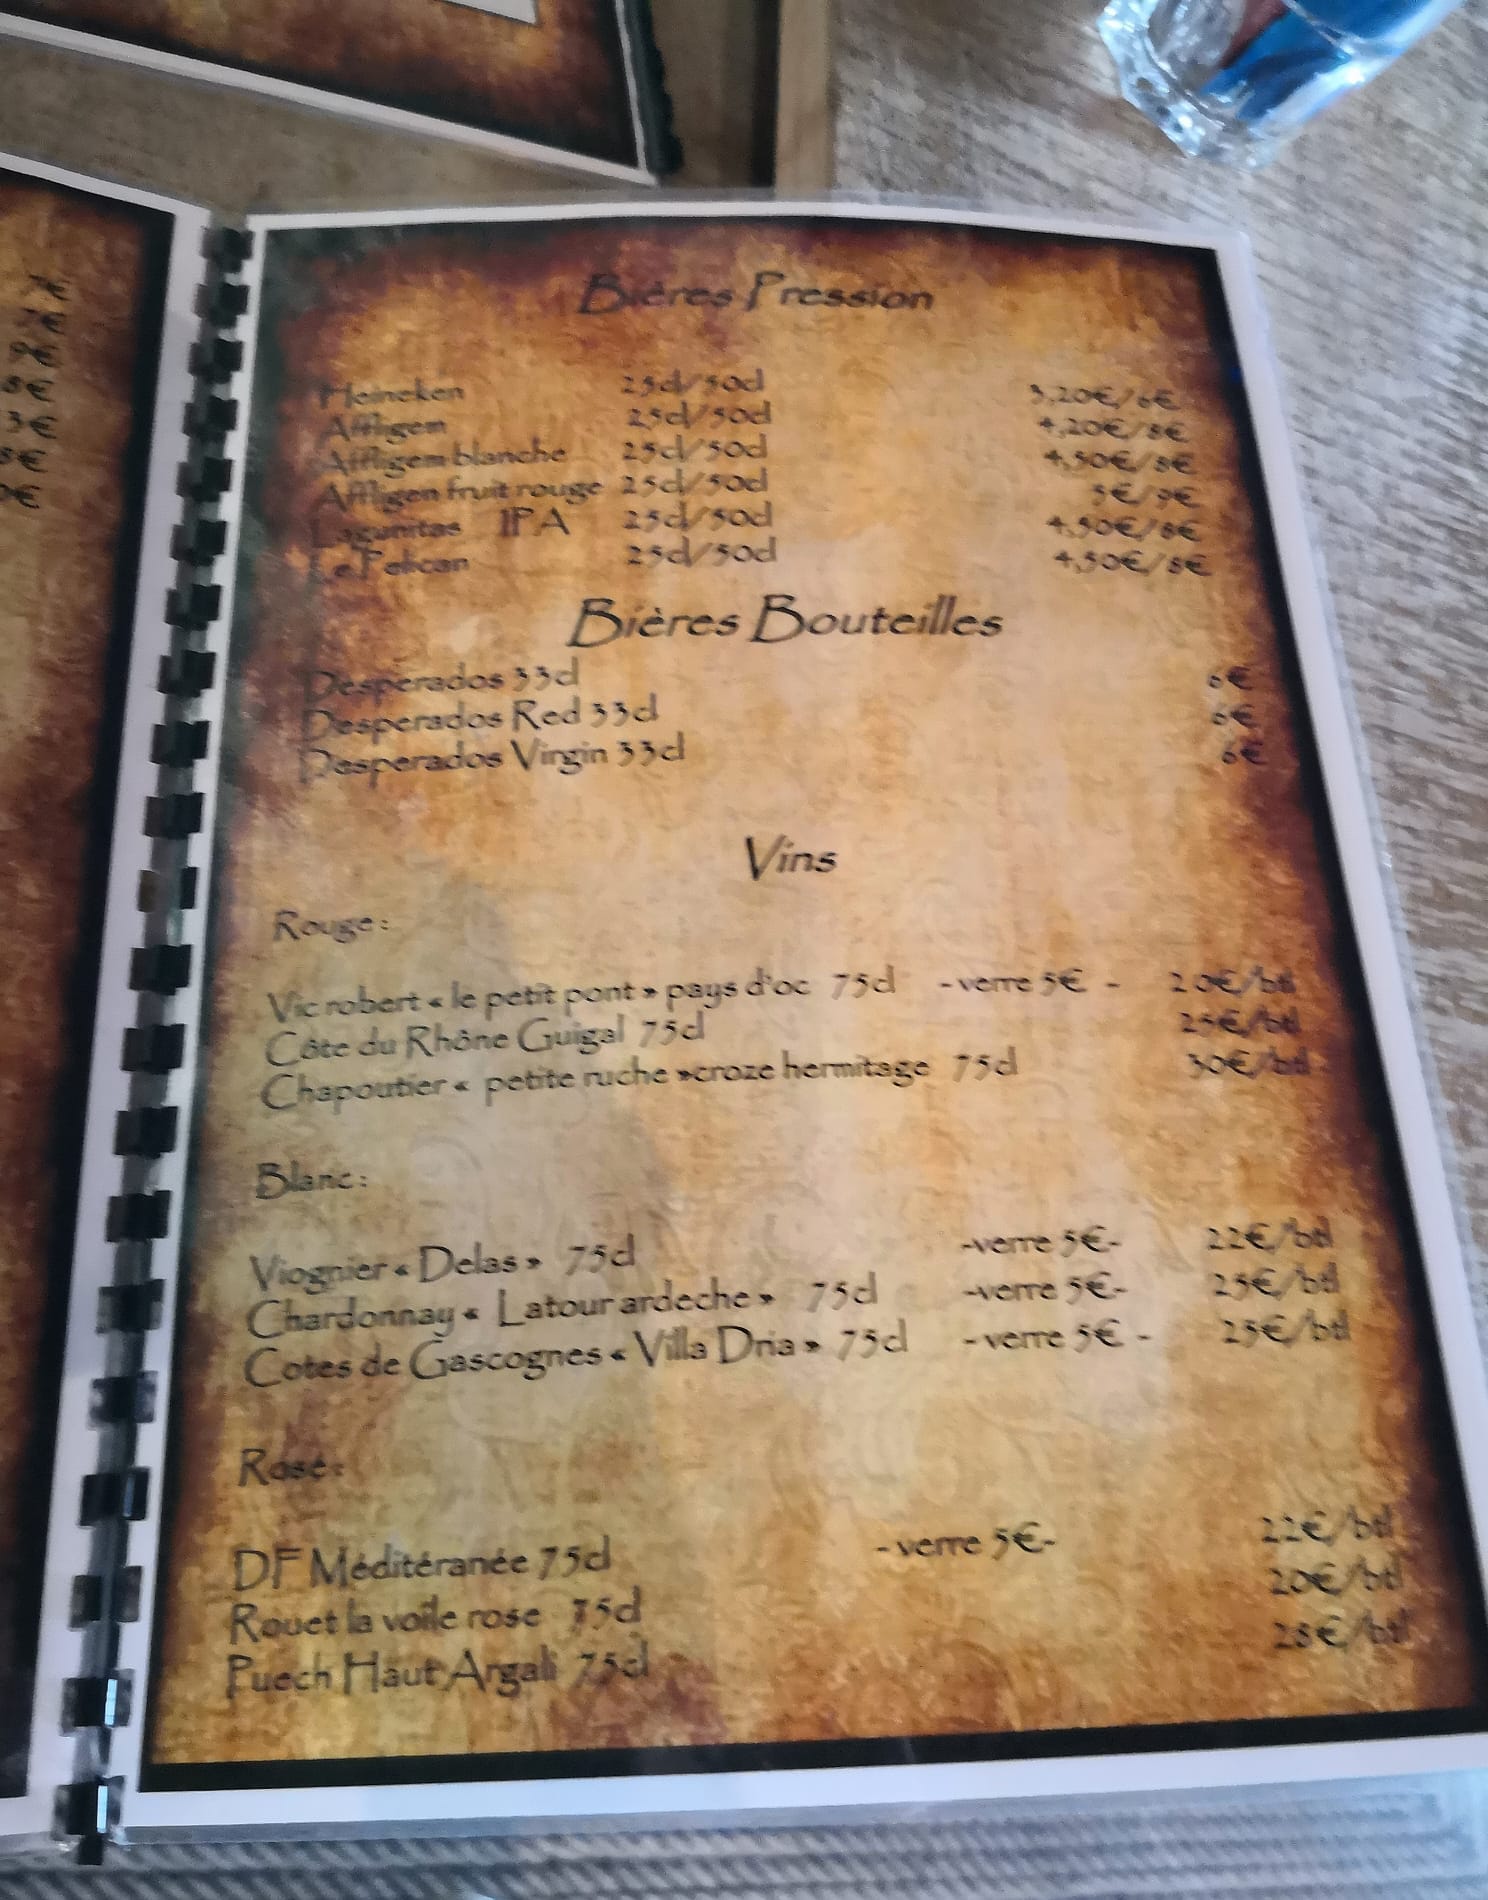 7€
7€
9€
8€
3€
8€
0€
Bières Pression
Heineken 25cl/50cl 3,20€/6€
Affligem 25cl/50cl 4,20€/8€
Affligem blanche 25cl/50cl 4,50€/8€
Affligen fruit rouge 25cl/50cl 5€/9€
Lagunitas IPA 25cl/50cl 4,50€/8€
Le Pelican 25cl/50cl 4,50€/8€
Bières Bouteilles
Desperados 33cl 6€
Desperados Red 33cl 6€
Desperados Virgin 33cl 6€
Vins
Rouge :
Vic robert « le petit pont » pays d'oc 75cl - verre 5€ - 20€/btl
Côte du Rhône Guigal 75cl 25€/btl
Chapoutier « petite ruche »croze hermitage 75cl 30€/btl
Blanc :
Viognier « Delas » 75cl -verre 5€- 22€/btl
Chardonnay « Latour ardeche » 75cl -verre 5€- 25€/btl
Cotes de Gascognes « Villa Dria » 75cl - verre 5€ - 25€/btl
Rosé :
DF Méditéranée 75cl - verre 5€- 22€/btl
Rouet la voile rose 75cl 20€/btl
Puech Haut Argali 75cl 28€/btl